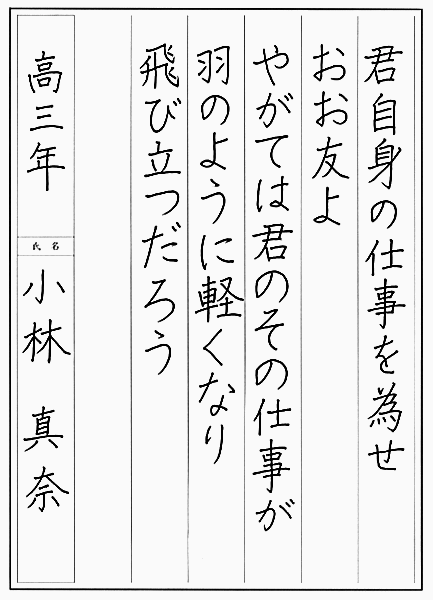 君自身の仕事を為せ
おお友よ
やがては君のその仕事が
羽のように軽くなり
飛び立つだろう
高三年
氏名
小林 真奈